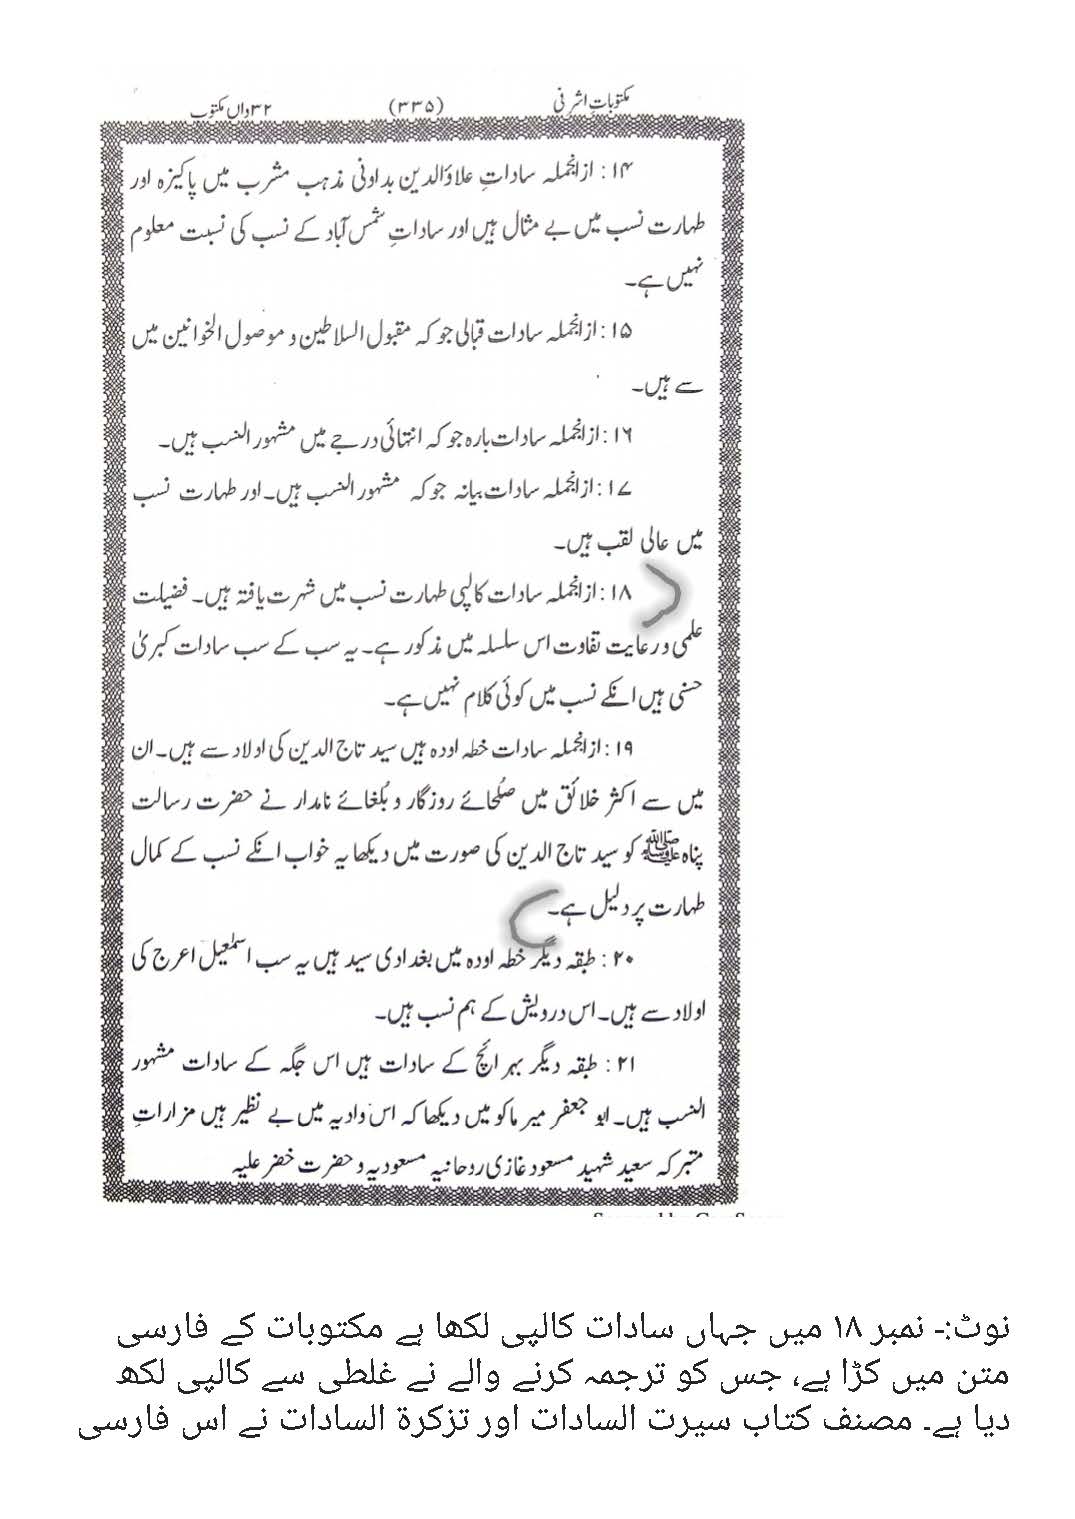 مکتوباتِ اشرفی (۳۳۵) ۳۲واں مکتوب
۱۴: ازانجملہ ساداتِ علاؤالدین بداونی مذہب مشرب میں پاکیزہ اور
طہارت نسب میں بے مثال ہیں اور ساداتِ شمس آباد کے نسب کی نسبت معلوم
نہیں ہے۔
۱۵: ازانجملہ سادات قبالی جو کہ مقبول السلاطین و موصول الخوانین میں
سے ہیں۔
۱۶: ازانجملہ سادات بارہ جو کہ انتہائی درجے میں مشہور النسب ہیں۔
۱۷: ازانجملہ سادات بیانہ جو کہ مشہور النسب ہیں۔ اور طہارت نسب
میں عالی لقب ہیں۔
۱۸: ازانجملہ سادات کالپی طہارت نسب میں شہرت یافتہ ہیں۔ فضیلت
علمی و رعایت تفاوت اس سلسلہ میں مذکور ہے۔ یہ سب کے سب سادات کبریٰ
حسنی ہیں انکے نسب میں کوئی کلام نہیں ہے۔
۱۹: ازانجملہ سادات خطہ اودہ ہیں سید تاج الدین کی اولاد سے ہیں۔ ان
میں سے اکثر خلائق میں صلحائے روزگار و بُلغائے نامدار نے حضرت رسالت
پناہ ﷺ کو سید تاج الدین کی صورت میں دیکھا یہ خواب انکے نسب کے کمال
طہارت پر دلیل ہے۔
۲۰: طبقہ دیگر خطہ اودہ میں بغدادی سید ہیں یہ سب اسمٰعیل اعرج کی
اولاد سے ہیں۔ اس درویش کے ہم نسب ہیں۔
۲۱: طبقہ دیگر بہرائچ کے سادات ہیں اس جگہ کے سادات مشہور
النسب ہیں۔ ابو جعفر میر ماکو میں دیکھا کہ اس وادیہ میں بے نظیر ہیں مزاراتِ
متبرکہ سعید شہید مسعود غازی روحانیہ مسعودیہ و حضرت خضر علیہ
نوٹ:- نمبر ۱۸ میں جہاں سادات کالپی لکھا ہے مکتوبات کے فارسی
متن میں کڑا ہے، جس کو ترجمہ کرنے والے نے غلطی سے کالپی لکھ
دیا ہے۔ مصنف کتاب سیرت السادات اور تزکرۃ السادات نے اس فارسی